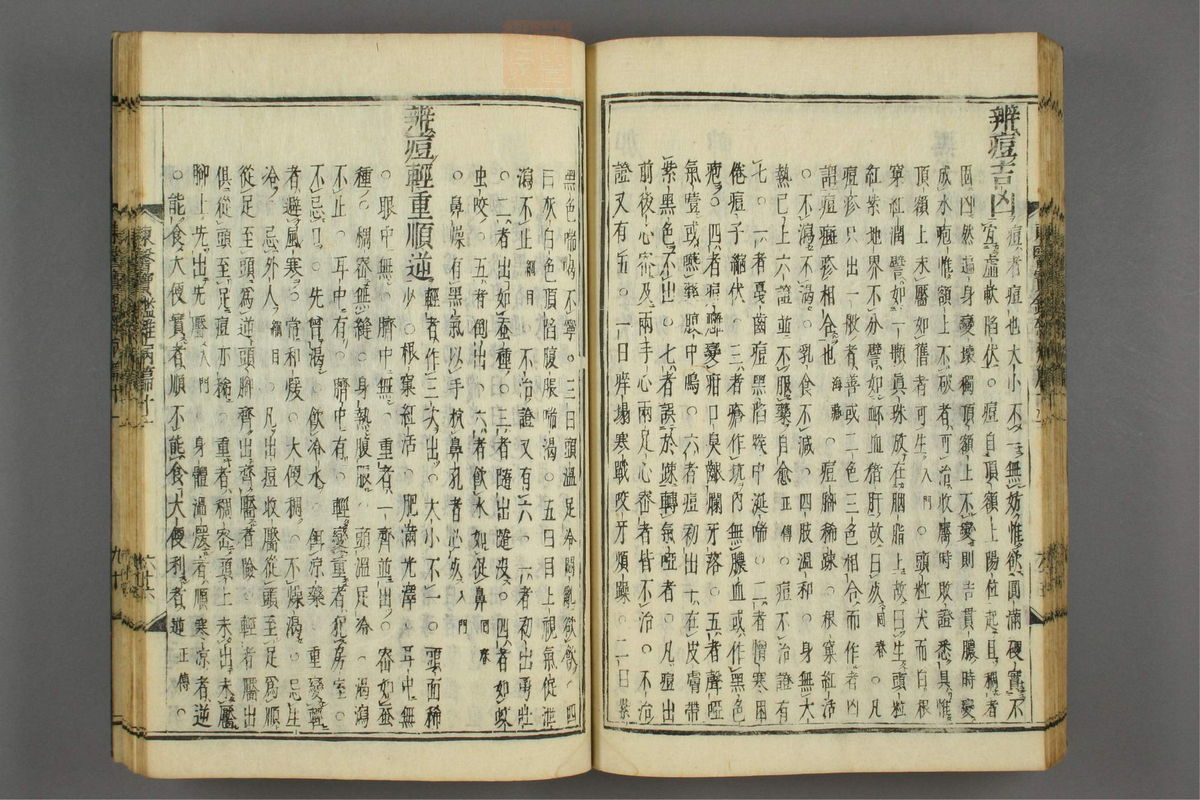 辨痘吉凶 痘者痘也大小不一無妨惟欲圓滿硬實不
宜虛軟陷伏○痘自頂額上陽位起且稠者
因凶然遍身變壞獨頂額上不變則吉貫膿時變
成水疱惟額上不破者可治收靨時敗證悉具惟
頂額上未靨如舊者可生入門○頭粒尖而白根
窠紅潤譬如一顆眞珠放在胭脂上故曰生頭粒
紅紫地界不分譬如衃血猪肝故曰死囘春○凡
痘疹只出一般者善或二色三色相合而作者凶
謂痘癍疹相合也海藏○痘腳稀踈○根窠紅活
○不瀉不渴○乳食不減○四肢溫和○身無大
熱已上六證並不服藥自愈正傳○痘不治證有
七○一者憂齒痘黑陷唉中涎喘○二者憎寒困
倦痘子縮伏○三者瘡作坑內無膿血或作黑色
疱○四者痘癰變疳口臭齦爛牙落○五者聲啞
氣噎或喉中鳴○六者痘初出十在皮膚帶
紫黑色不出○七者誤於踈轉氣啞者○凡痘出
前後心密及兩手心兩足心密者皆不治○不治
證又有五○一日痒塌寒戰咬牙煩躁○二日紫
黑色喘渴不寧○三日頭溫足冷悶亂欲飮○四
日灰白色頂陷腹脹喘渴○五日目上視氣促泄
瀉不止綱目○不治證又有六○一者初出勇壯
○二者出如蚕種○三者隨出隨沒○四者如蚊
虫咬○五者倒出○六者飮水如促鼻囘春
○鼻燥有黑氣以手抗鼻孔者必死入門
辨痘輕重順逆 輕者作三次出○大小不一○頭面稀
少○根窠紅活○肥滿光澤○耳中無
○眼中無○臍中無○重者一齊並出○密如蚕
種○稠密無縫○身熱腹脹○頭溫足冷○渴瀉
不止○耳中有○臍中有○輕變重者犯房室○
不忌口○先曾渴○飮冷水○餌凉藥○重變輕
者避風寒○常和煖○大便稠○不燥渴○忌生
冷○忌外人綱目○凡出痘收靨從頭至足爲順
從足至頭爲逆頭腳齊出齊靨者險○輕者靨出
俱從頭至足痘亦稀○重者稠密頭上未出未靨
腳上先出先靨入門○身體溫煖者順寒凉者逆
○能食大便實者順不能食大便利者逆正傳○